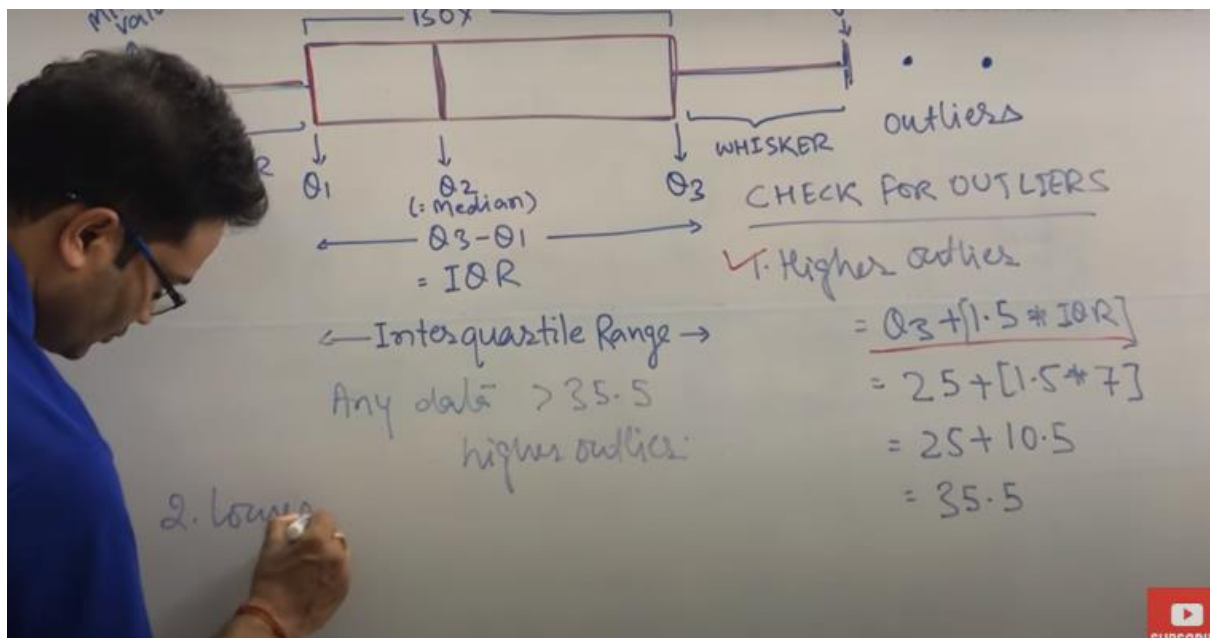 BOX
outliers
WHISKER
Q1
Q2
(= Median)
Q3
Q3-Q1
= IQR
Interquartile Range
Any data > 35.5
higher outlier.
CHECK FOR OUTLIERS
1. Higher outlier
= Q3+[1.5*IQR]
= 25+[1.5*7]
= 25+10.5
= 35.5
2. Lower